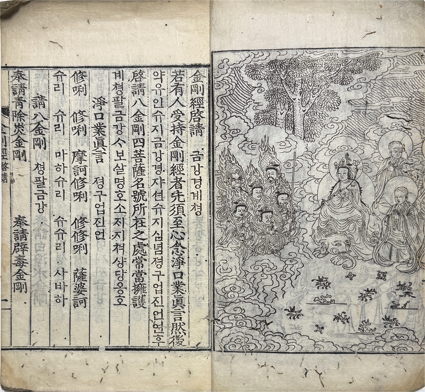 金剛經啓請 금강경계쳥
若有人受持金剛經者先須至心念淨口業眞言然後
약유인슈지금강경쟈션슈지심념졍구업진언연후
啓請八金剛四菩薩名號所在之處常當擁護
계쳥팔금강ᄉᆞ보살명호소ᄌᆡ지쳐샹당옹호
淨口業眞言 졍구업진언
修唎 修唎 摩訶修唎 修修唎 薩婆訶
슈리 슈리 마하슈리 슈슈리 사바하
請八金剛 쳥팔금강
奉請青除災金剛 奉請辟毒金剛